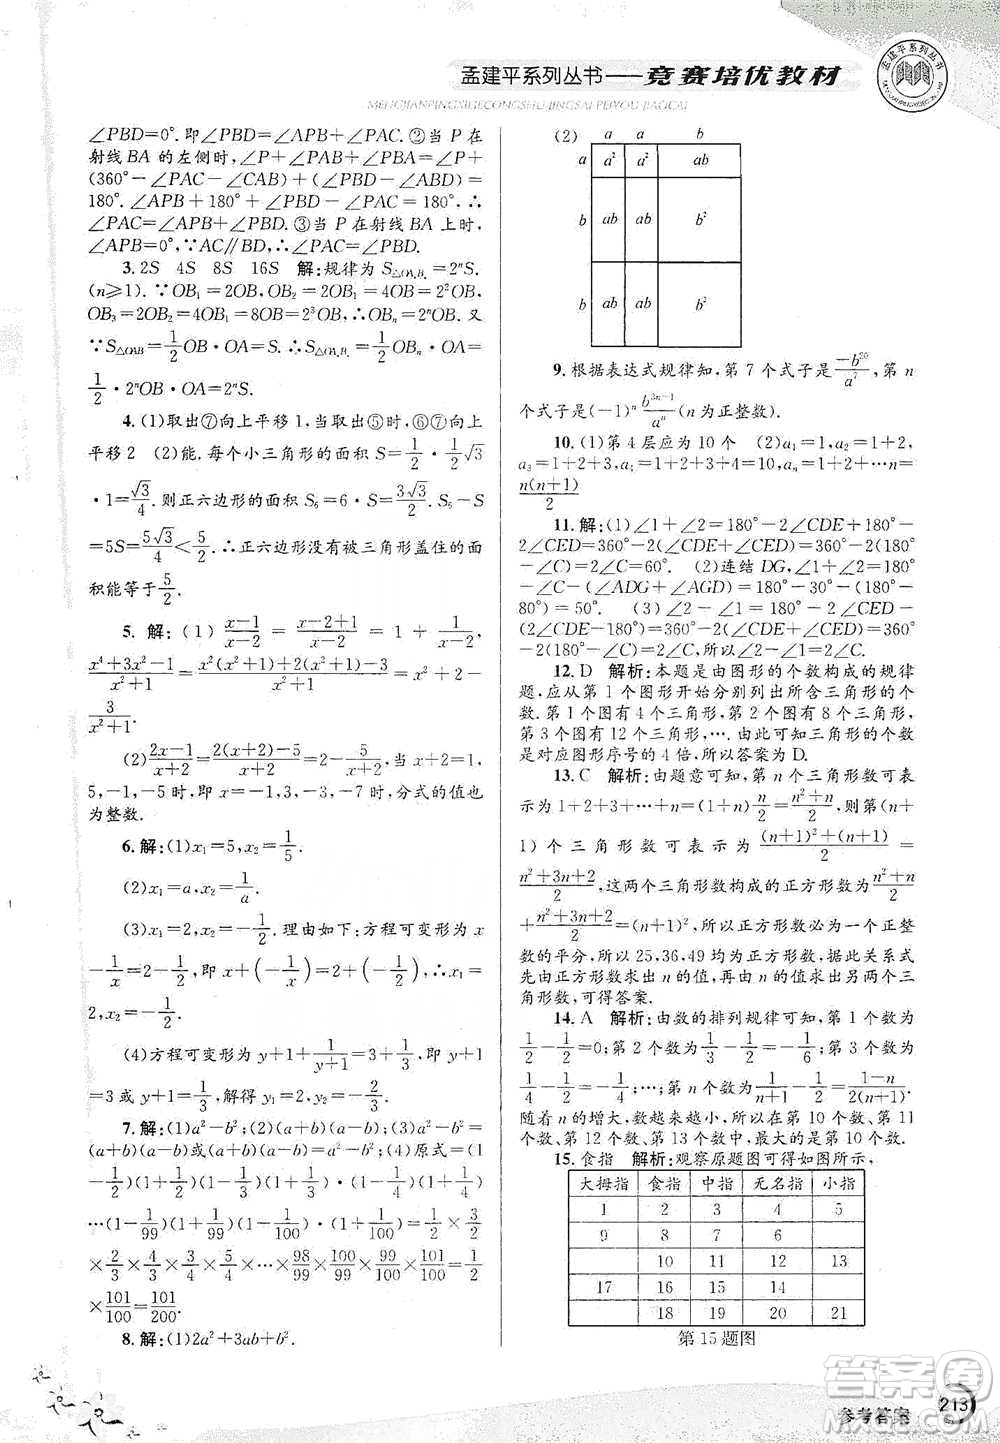 孟建平系列丛书——竞赛培优教材
MENGJIANPINGXILIECONGSHU JINGSAI PEIYOU JIAOCAI
∠PBD=0°.即∠PBD=∠PBA+∠PAC.②当 P 在
射线 BA 的左侧时,∠P+∠PAB+∠PBA=180°.∴∠P+
(360°-∠PAC-∠CAB)+(∠PBD-∠ABD)=
180°.∴∠APB+180°+∠PBD-∠PAC=180°.∴
∠PAC=∠APB+∠PBD.③当 P 在射线 BA 上时,
∠APB=0°.∵AC∥BD,∴∠PAC=∠PBD.
3.2S 4S 8S 16S 解:规律为 S△OAₙBₙ=2ⁿS.
(n≥1).∵OB₁=2OB,OB₂=2OB₁=4OB=2²OB,
OB₃=2OB₂=4OB₁=8OB=2³OB,∴OBₙ=2ⁿOB.又
∵S△OAB=1/2 OB·OA=S.∴S△OAₙBₙ=1/2 OBₙ·OA=
1/2·2ⁿOB·OA=2ⁿS.
4.(1)取出⑦向上平移1,当取出⑤时,⑥⑦向上
平移2 (2)能.每个小三角形的面积 S=1/2·1/2√3
·1=√3/4.则正六边形的面积 S₆=6·S=3√3/2.S₆-S
=5S=5√3/4<5/2.∴正六边形没有被三角形盖住的面
积能等于5/2.
5.解:(1)(x-1)/(x-2)=(x-2+1)/(x-2)=1+1/(x-2),
(x⁴+3x²-1)/(x²+1)=(x²(x²+1)+2(x²+1)-3)/(x²+1)=x²+2-
3/(x²+1).
(2)(2x-1)/(x+2)=(2(x+2)-5)/(x+2)=2-5/(x+2),当x+2=1,
5,-1,-5时,即x=-1,3,-3,-7时,分式的值也
为整数.
6.解:(1)x₁=5,x₂=1/5.
(2)x₁=a,x₂=1/a.
(3)x₁=2,x₂=-1/2.理由如下:方程可变形为 x
-1/x=2-1/2,即 x+(-1/x)=2+(-1/2),∴x₁=
2,x₂=-1/2.
(4)方程可变形为 y+1+1/(y+1)=3+1/3,即 y+1
=3或y+1=1/3,解得:y₁=2,y₂=-2/3.
7.解:(1)a²-b²;(2)(a+b)(a-b);(3)a²-b²
=(a+b)(a-b)或(a+b)(a-b)=a²-b²;(4)原式=(1-
1/2)(1+1/2)(1-1/3)(1+1/3)(1-1/4)(1+1/4)
…(1-1/99)(1+1/99)(1-1/100)(1+1/100)=1/2×3/2×
2/3×4/3×3/4×5/4×…×98/99×100/99×99/100×101/100=1/2
×101/100=101/200.
8.解:(1)2a²+3ab+b².
(2) a a b
a a² a² ab
b ab ab b²
b ab ab b²
9.根据表达式规律知,第7个式子是-b²⁰/a⁷,第n
个式子是(-1)ⁿ b³ⁿ⁻¹/aⁿ(n为正整数).
10.(1)第4层应为10个 (2)a₁=1,a₂=1+2,
a₃=1+2+3,a₄=1+2+3+4,aₙ=1+2+…n=
n(n+1)/2
11.解:(1)∠1+∠2=180°-2∠CDE+180°-
2∠CED=360°-2(∠CDE+∠CED)=360°-2(180°
-∠C)=2∠C=60°. (2)连结DG,∠1+∠2=180°
-∠C-(∠ADG+∠AGD)=180°-30°-(180°-
80°)=50°. (3)∠2-∠1=180°-2∠CED-
(2∠CDE-180°)=360°-2(∠CDE+∠CED)=360°
-2(180°-∠C)=2∠C,所以:∠2-∠1=2∠C.
12.D 解析:本题是由图形的个数构成的规律
题,应从第1个图形开始分别列出所含三角形的个
数.第1个图有4个三角形,第2个图有8个三角形,
第3个图有12个三角形,….由此可知三角形的个数
是对应图形序号的4倍,所以答案为D.
13.C 解析:由题意可知,第n个三角形数可表
示为1+2+3+…+n=(1+n)n/2=(n²+n)/2,则第(n+
1)个三角形数可表示为((n+1)²+(n+1))/2=
(n²+3n+2)/2.所以,这两个三角形数构成的正方形数为(n²+n)/2
+(n²+3n+2)/2=(n+1)²,所以正方形数必为一个正整
数的平分,所以25,36,49均为正方形数.据此关系式
先由正方形数求出n的值,再由n的值求出另两个三
角形数,可得答案.
14.A 解析:由数的排列规律可知,第1个数为
1/2-1/2=0;第2个数为1/3-1/2=-1/6;第3个数为
1/4-1/2=-1/4;…;第n个数为1/(n+1)-1/2=(1-n)/(2(n+1)).
随着n的增大,数越来越小,所以在第10个数、第11
个数、第12个数、第13个数中,最大的是第10个数.
15.食指 解析:观察原题图可得如图所示,
大拇指 食指 中指 无名指 小指
1 2 3 4 5
9 8 7 6
10 11 12 13
17 16 15 14
18 19 20 21
第15题图
参考答案
213
答案圈
MXQE.COM